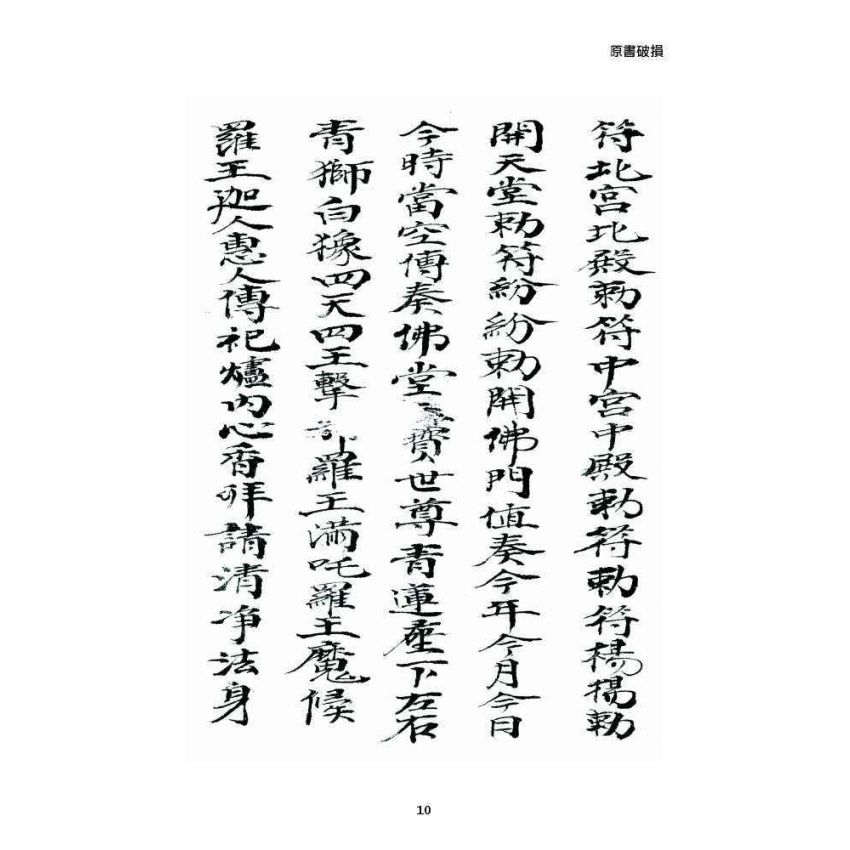 原書破損
符北宮北殿勅符中宮中殿勅符勅符楊揚勅
開天堂勅符紛紛勅開佛門值奏今年今月今日
今時當空傳奏佛堂賛世尊青蓮座下左右
青獅白獴四天四王擊羅王満吒羅王魔候
羅王迦人惠人傳祀爐內心香拜請清净法身
10